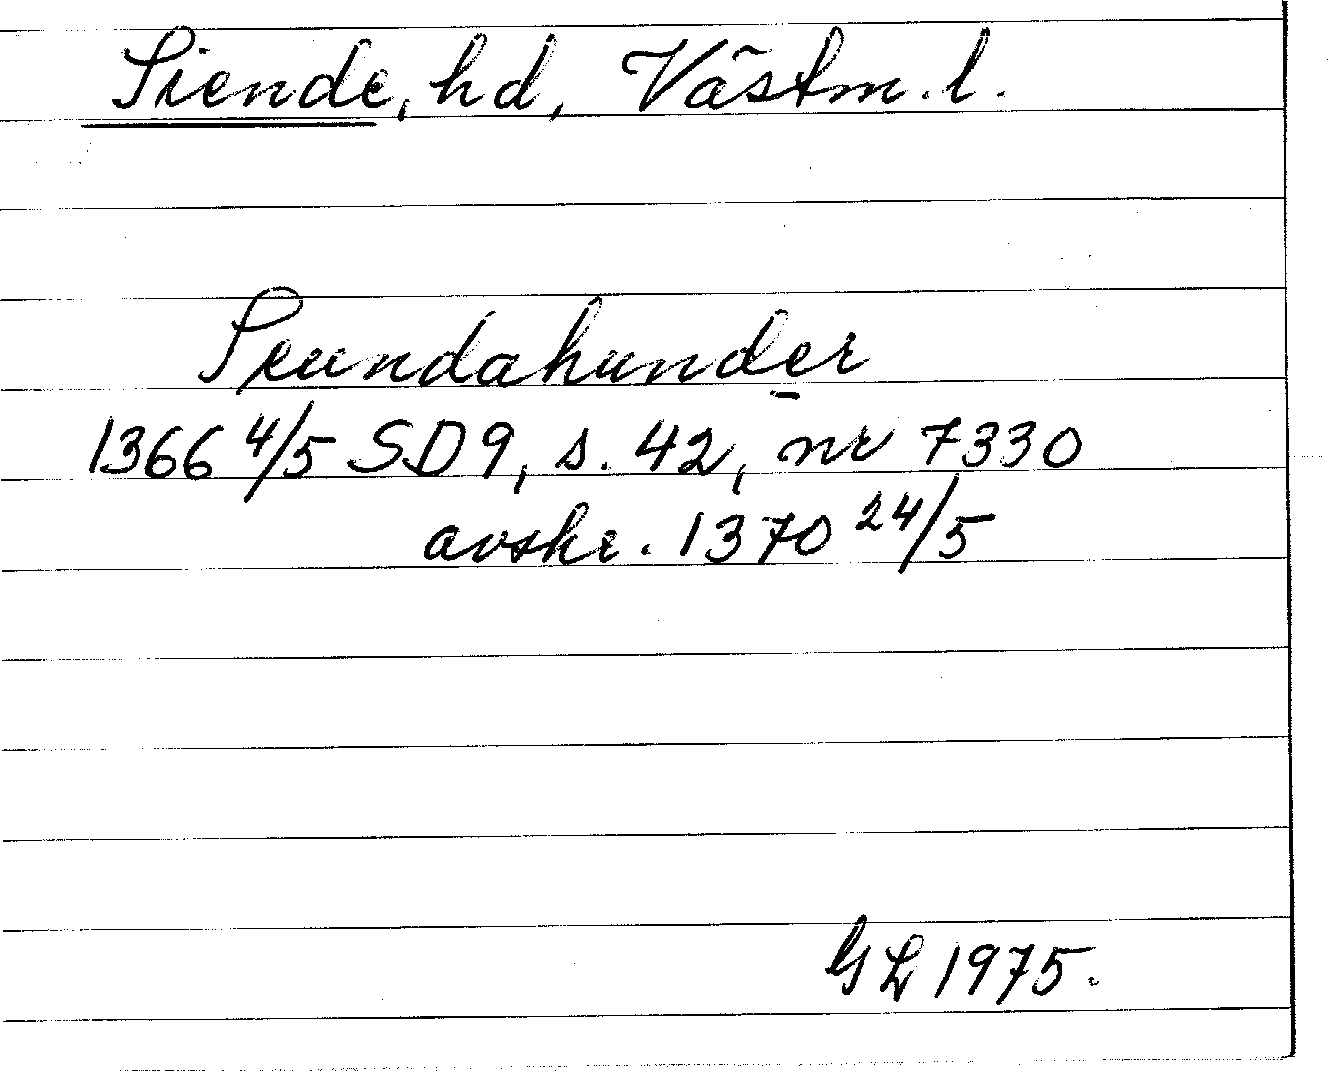 Siende, hd, Västm. l.
Seundahunder
1366 4/5 SD 9, s. 42, nr 7330
avskr. 1370 24/5
GL 1975.